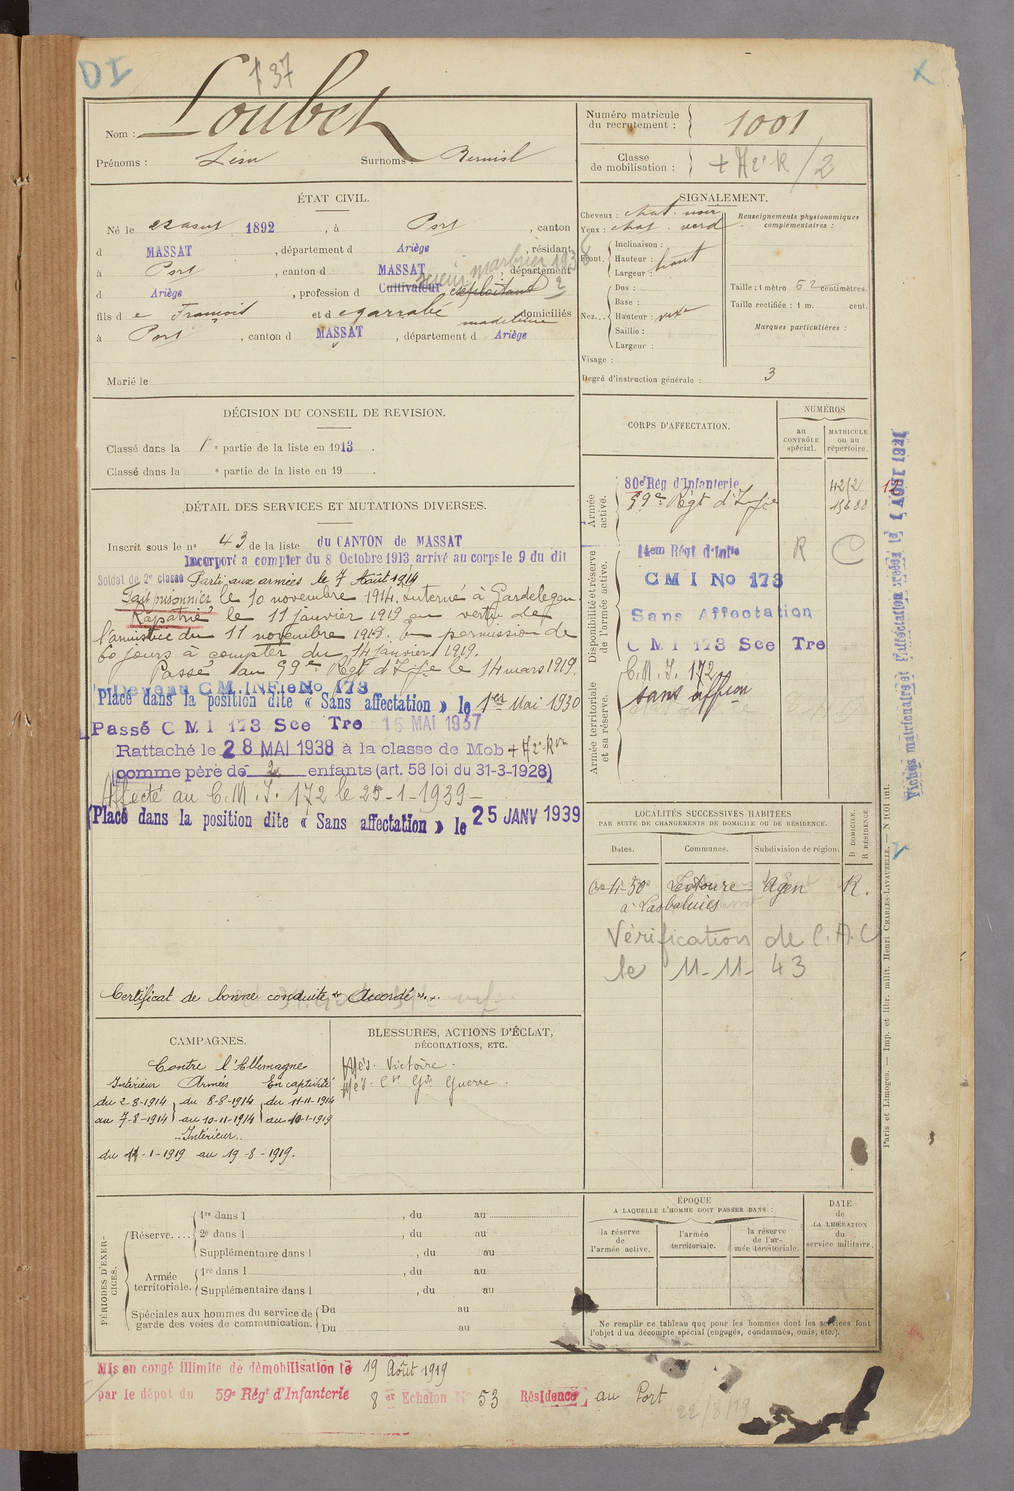 DI
137
Nom : Loubet
Prénoms : Léon Surnoms :
Numéro matricule du recrutement : 1001
Classe de mobilisation : + A 2e R / 2
ÉTAT CIVIL.
Né le août 1892, à Port, canton
d MASSAT, département d Ariège, résidant
à Port, canton d MASSAT, département
d Ariège, profession d Cultivateur exploitant
fils d e François et d e garrabé madeleine domiciliés
à Port, canton d MASSAT, département d Ariège
Marié le
SIGNALEMENT.
Cheveux : chat. noir
Yeux : chat. verd
Front. Inclinaison :
Hauteur : haut
Largeur :
Nez... Dos :
Base :
Hauteur :
Saillie :
Largeur :
Visage :
Degré d'instruction générale : 3
Renseignements physionomiques complémentaires :
Taille : 1 mètre 62 centimètres.
Taille rectifiée : 1 m. cent.
Marques particulières :
DÉCISION DU CONSEIL DE REVISION.
Classé dans la 1re partie de la liste en 1913.
Classé dans la e partie de la liste en 19 .
DÉTAIL DES SERVICES ET MUTATIONS DIVERSES.
Inscrit sous le no 43 de la liste du CANTON de MASSAT
Incorporé a compter du 8 Octobre 1913 arrivé au corps le 9 du dit
Soldat de 2e classe Parti aux armées le 7 Août 1914
Fait prisonnier le 10 novembre 1914. Interné à Gardelegen
Rapatrié le 11 janvier 1919 en vertu de
l'armistice du 11 novembre 1918. En permission de
60 jours à compter du 14 janvier 1919.
Passé au 59e Régt d'Inf.ie le 14 mars 1919.
Devenu C M INF.ie No 173
Placé dans la position dite « Sans affectation » le 1er Mai 1930
Passé C M I 173 See Tre 15 MAI 1937
Rattaché le 28 MAI 1938 à la classe de Mob + A 2e Ron
comme père de 2 enfants (art. 58 loi du 31-3-1928)
Affecté au C. M. I. 172 le 25-1-1939 -
Placé dans la position dite « Sans affectation » le 25 JANV 1939
Certificat de bonne conduite « Accordé ».
CORPS D'AFFECTATION.
NUMÉROS
au CONTRÔLE spécial.
MATRICULE ou au répertoire.
Armée active.
80e Rég d'Infanterie 4212
59e Régt d'Infie 15688
Disponibilité et réserve de l'armée active.
14em Régt d'Infie R C
C M I No 173
Sans Affectation
C M I 173 See Tre
Armée territoriale et sa réserve.
C. M. I. 172
sans affion
Fiches matriculaire et d'affectation créées le 1 AOUT 1921
LOCALITÉS SUCCESSIVES HABITÉES
PAR SUITE DE CHANGEMENTS DE DOMICILE OU DE RÉSIDENCE.
Dates. Communes. Subdivision de région. D DOMICILE. R RÉSIDENCE.
Lectoure Agen R.
Vérification de C. A. C
le 11-11-43
CAMPAGNES.
Contre l'Allemagne
Intérieur Armées En captivité
du 2-8-1914 du 8-8-1914 du 11-11-1914
au 7-8-1914 au 10-11-1914 au 10-1-1919
Intérieur
du 11-1-1919 au 19-8-1919.
BLESSURES, ACTIONS D'ÉCLAT,
DÉCORATIONS, ETC.
Mé's. Victoire.
Mé's. Cve Gde Guerre.
PÉRIODES D'EXERCICES.
Réserve.... 1re dans l , du au
2e dans l , du au
Supplémentaire dans l , du au
Armée territoriale. 1re dans l , du au
Supplémentaire dans l , du au
Spéciales aux hommes du service de garde des voies de communication. Du au
Du au
ÉPOQUE
A LAQUELLE L'HOMME DOIT PASSER DANS :
la réserve de l'armée active.
l'armée territoriale.
la réserve de l'armée territoriale.
DATE de LA LIBÉRATION du service militaire.
Ne remplir ce tableau que pour les hommes dont les services font
l'objet d'un décompte spécial (engagés, condamnés, omis, etc.).
Paris et Limoges. — Imp. et libr. milit. Henri CHARLES-LAVAUZELLE. — N 1001 int.
Mis en congé illimité de démobilisation le 19 Août 1919
par le dépot du 59e Régt d'Infanterie 8er Echelon No 53 Résidence au Port
22/8/19